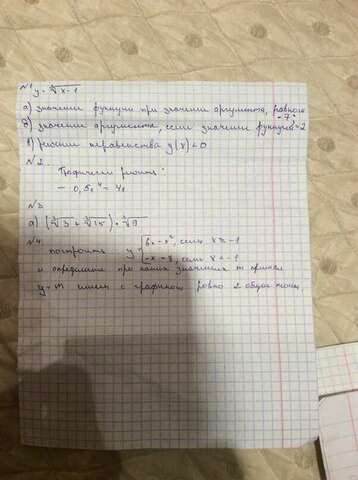 №1 y = ∛x-1
а) значение функции при значении аргумента, равного -7;
б) значение аргумента, если значение функции = 2
в) решить неравенства y(x) < 0
№2.
Графически решить:
- 0,5x⁴ = 4x
№3
а) (∛3 + ∛15) · ∛9
№4.
построить y = { 6x - x², если x ≥ -1
{ -x - 8, если x < -1
и определите при каких значениях m прямая
y = m имеет с графиком ровно 2 общие точки